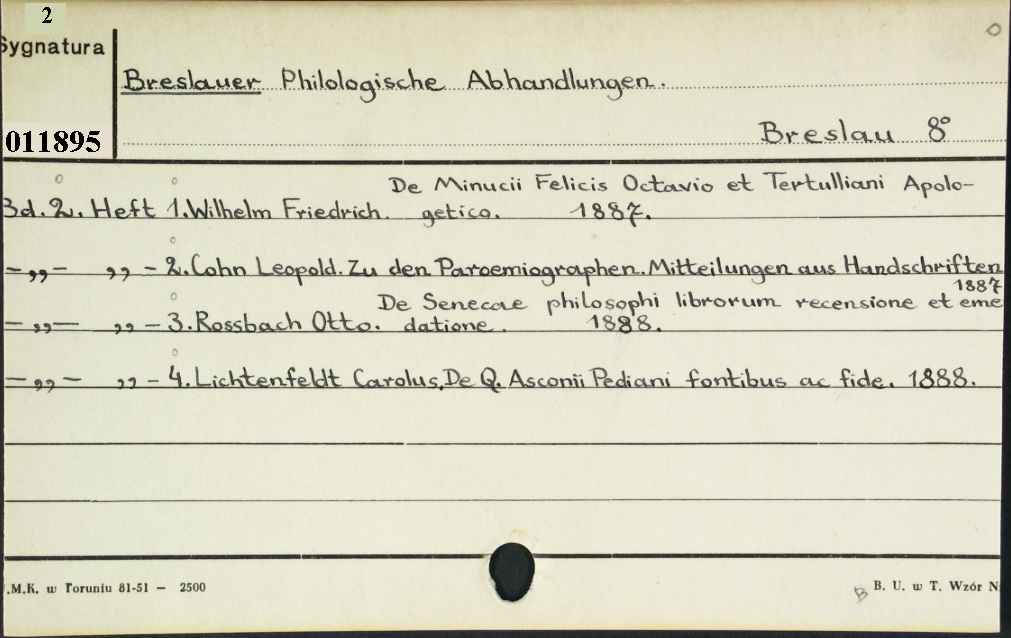 2
Sygnatura
Breslauer Philologische Abhandlungen.
011895
Breslau 8°
De Minucii Felicis Octavio et Tertulliani Apolo-
Bd. 2. Heft 1. Wilhelm Friedrich. getico. 1887.
—„— „ — 2. Cohn Leopold. Zu den Paroemiographen. Mitteilungen aus Handschriften
1887
De Senecae philosophi librorum recensione et eme
—„— „ — 3. Rossbach Otto. datione. 1888.
—„— „ — 4. Lichtenfeldt Carolus. De Q. Asconii Pediani fontibus ac fide. 1888.
.M.K. w Toruniu 81-51 — 2500
B B. U. w T. Wzór N